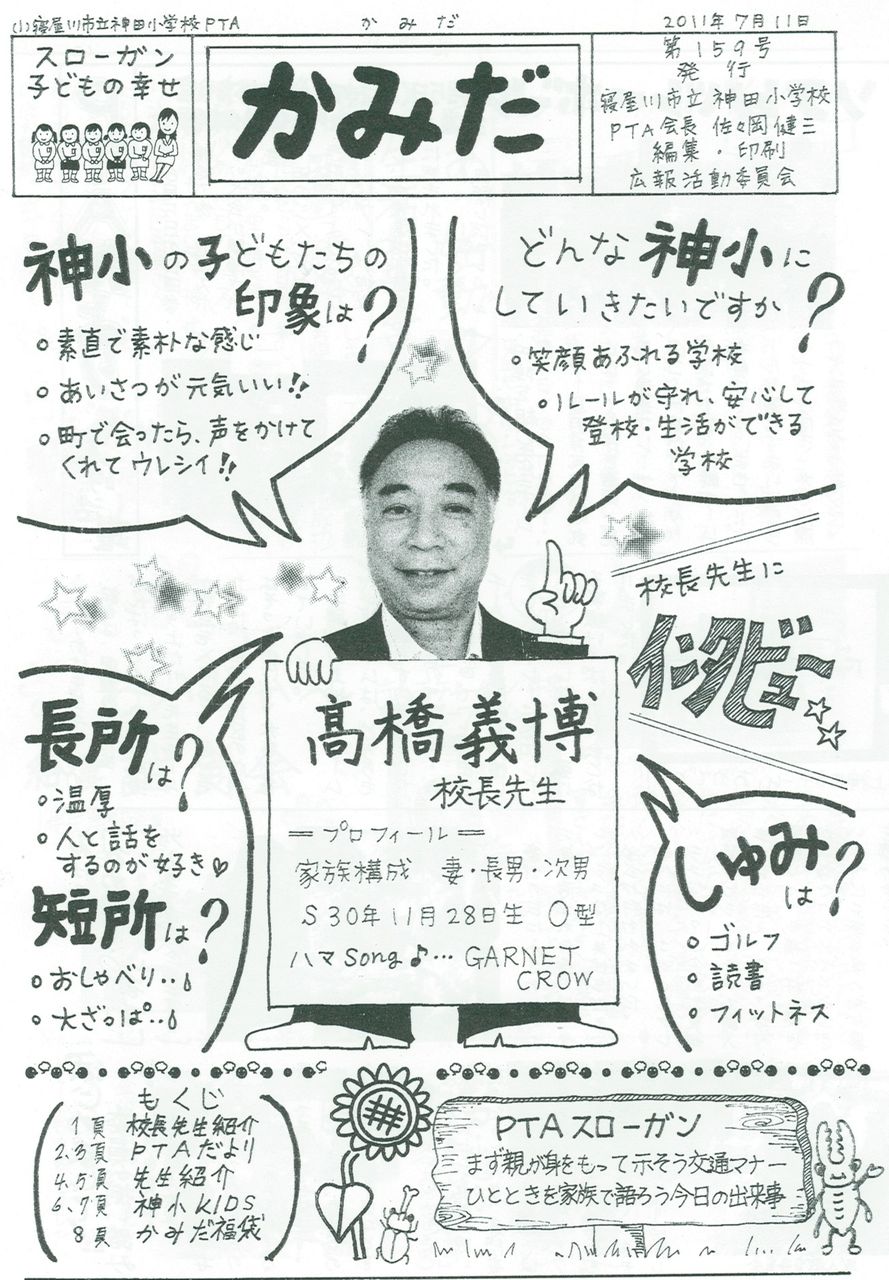 (1)寝屋川市立神田小学校PTA
かみだ
2011年7月11日
スローガン
子どもの幸せ
かみだ
第159号
発行
寝屋川市立神田小学校
PTA会長 佐々岡健三
編集・印刷
広報活動委員会
神小の子どもたちの
印象は?
○素直で素朴な感じ
○あいさつが元気いい!!
○町で会ったら、声をかけて
くれてウレシイ!!
どんな神小に
していきたいですか?
○笑顔あふれる学校
○ルールが守れ、安心して
登校・生活ができる
学校
校長先生に
インタビュー
長所は?
○温厚
○人と話を
するのが好き♡
短所は?
○おしゃべり‥
○大ざっぱ‥
髙橋義博
校長先生
=プロフィール=
家族構成 妻・長男・次男
S30年11月28日生 O型
ハマSong♪… GARNET
CROW
しゅみは?
○ゴルフ
○読書
○フィットネス
もくじ
1頁 校長先生紹介
2、3頁 PTAだより
4、5頁 先生紹介
6、7頁 神小KIDS
8頁 かみだ福袋
PTAスローガン
まず親が身をもって示そう交通マナー
ひとときを家族で語ろう今日の出来事